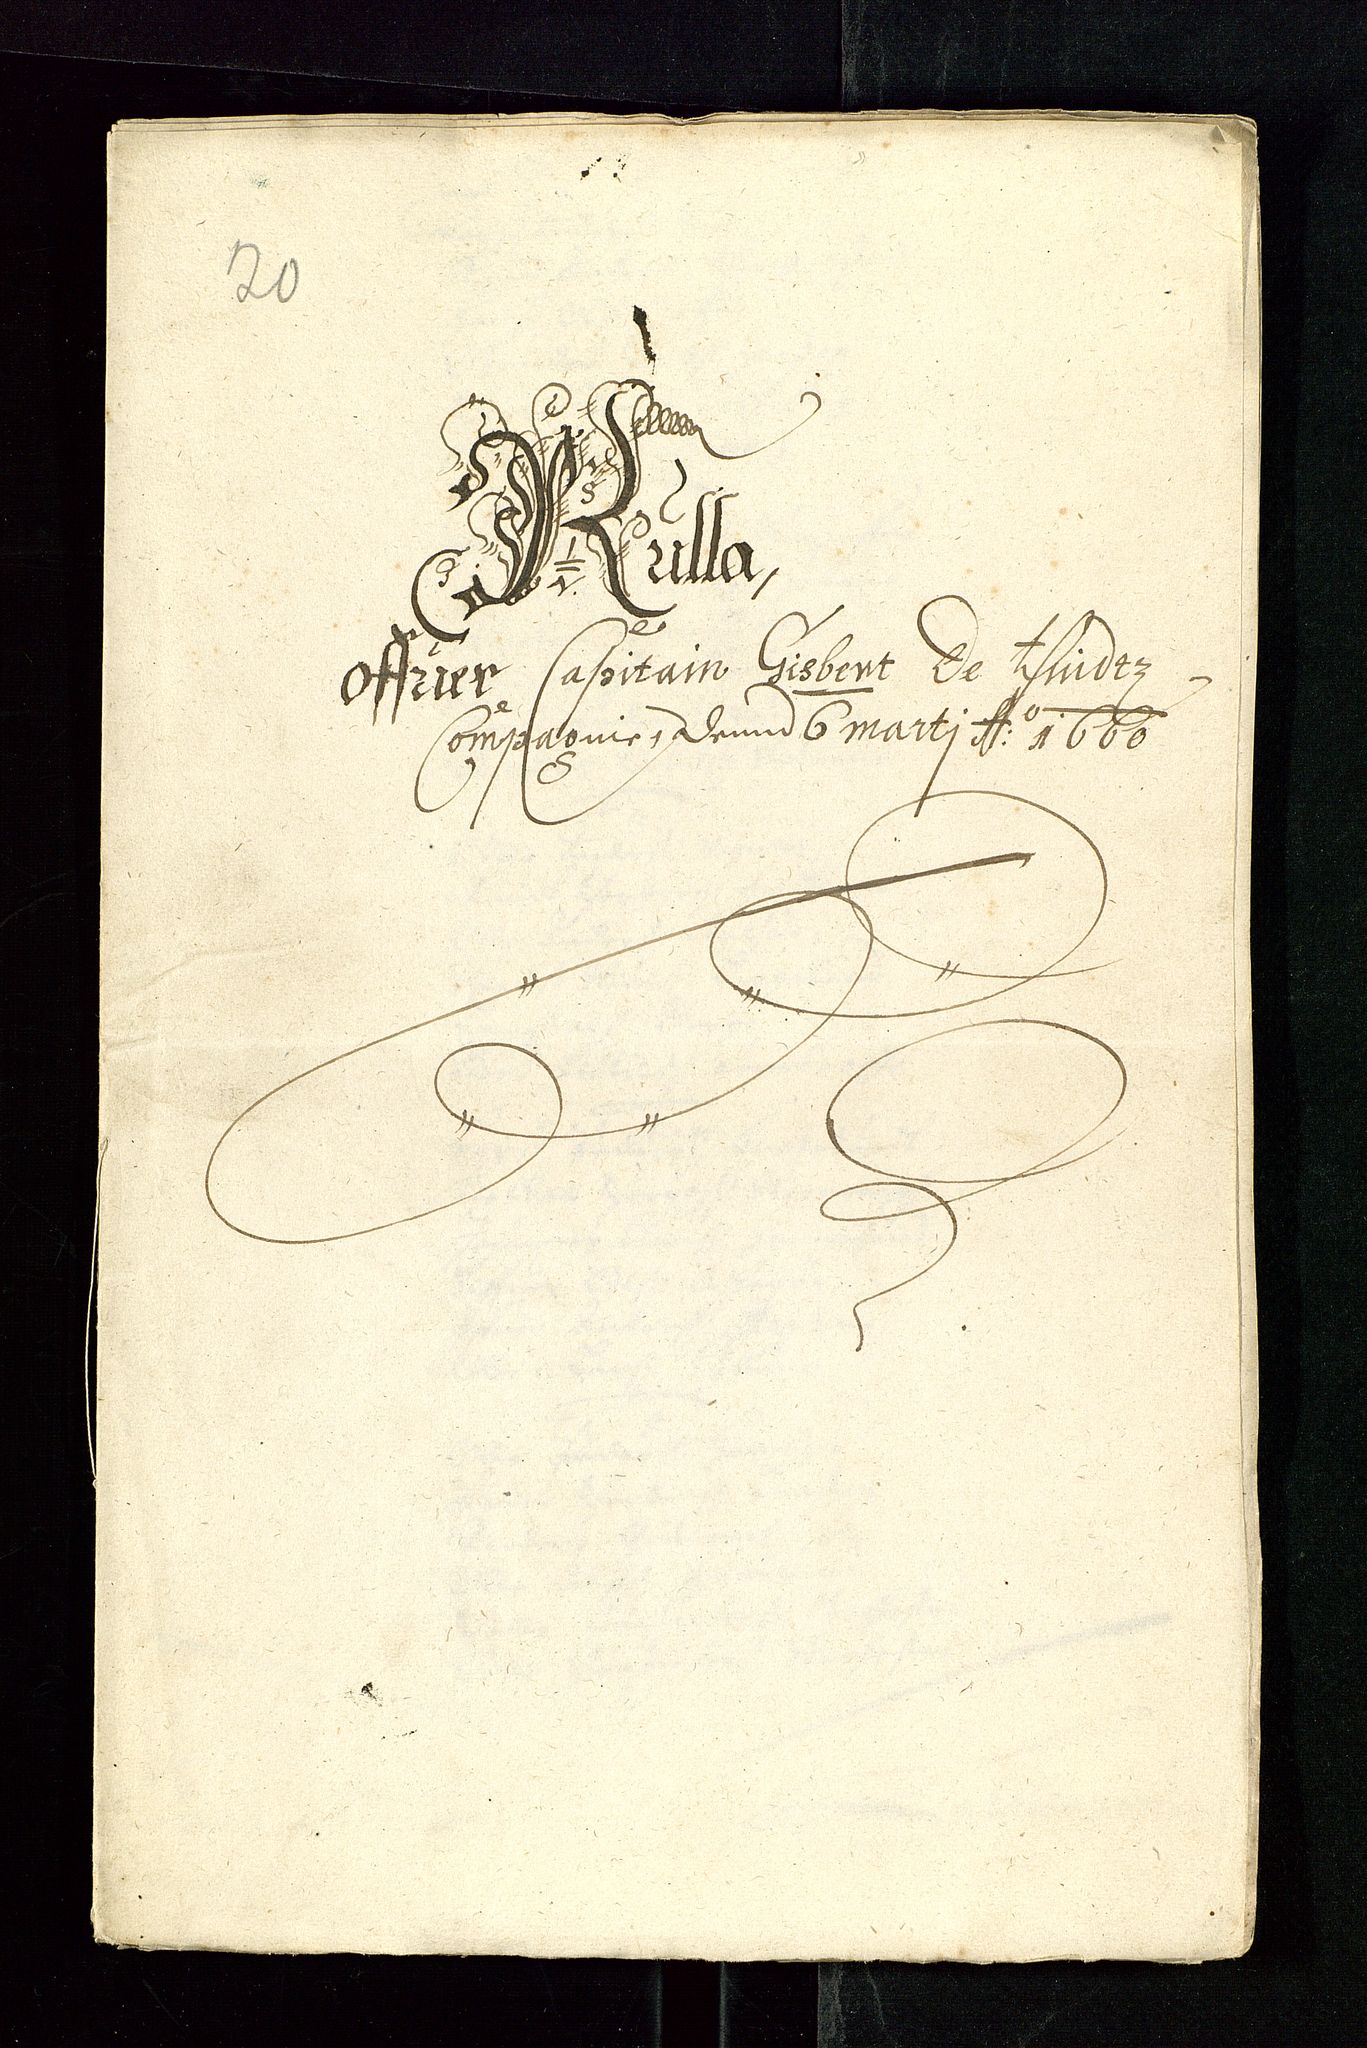 20
Rulla,
offuer Capitain Gisbert De
Compagnie, Dennd 6 martj Ao: 1660